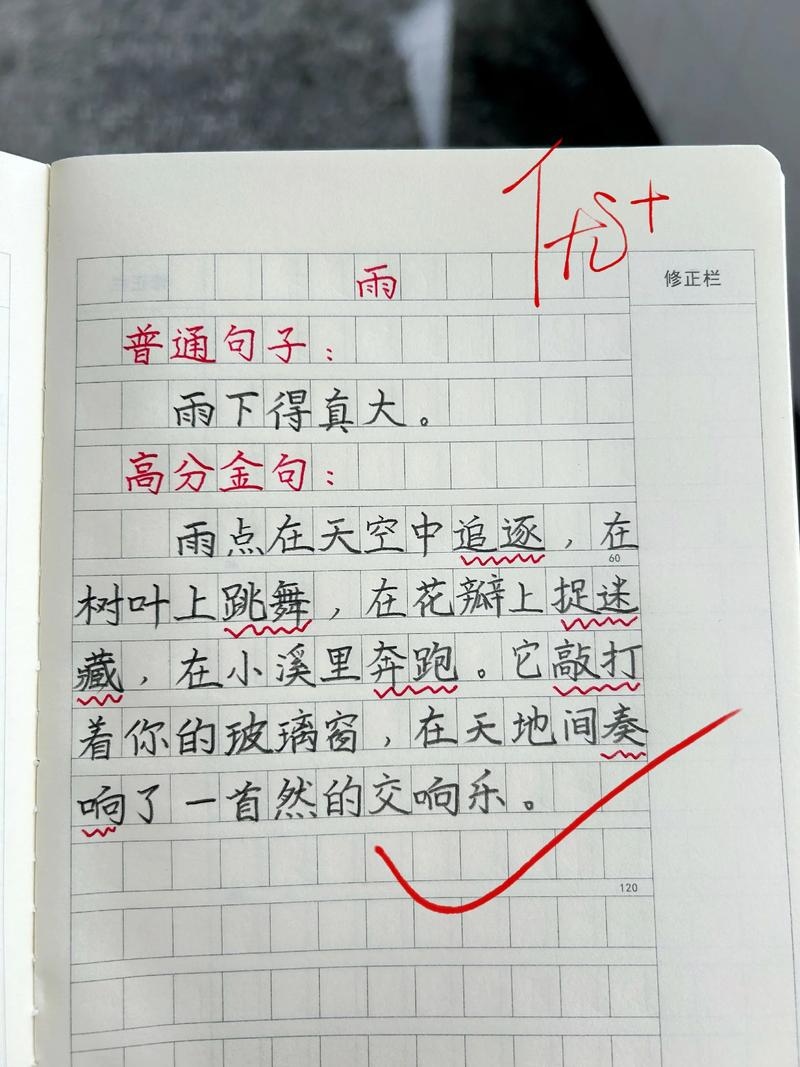 优+
修正栏
雨
普通句子：
雨下得真大。
高分金句：
雨点在天空中追逐，在
60
树叶上跳舞，在花瓣上捉迷
藏，在小溪里奔跑。它敲打
着你的玻璃窗，在天地间奏
响了一首然的交响乐。
120